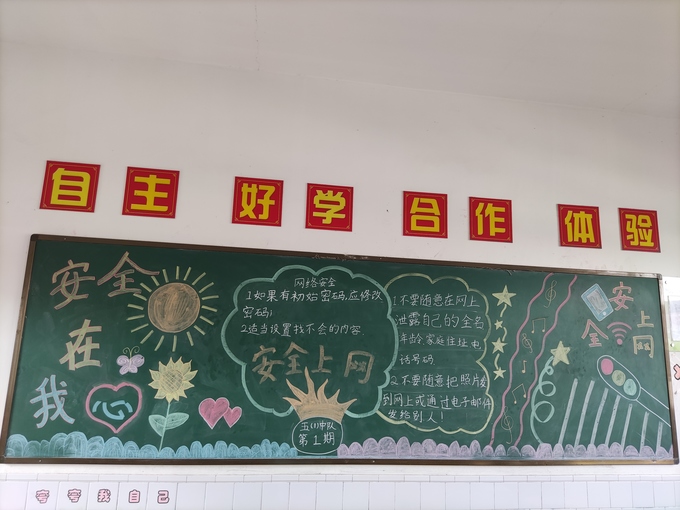 自主 好学 合作 体验
安全
在
我
心
网络安全
1如果有初始密码,应修改
密码;
2适当设置找不会的内容
安全上网
五(1)中队
第1期
1不要随意在网上
泄露自己的全名
年龄,家庭住址,电
话号码
2.不要随意把照片发
到网上或通过电子邮件
发给别人!
安
全
上
网
夸夸我自己